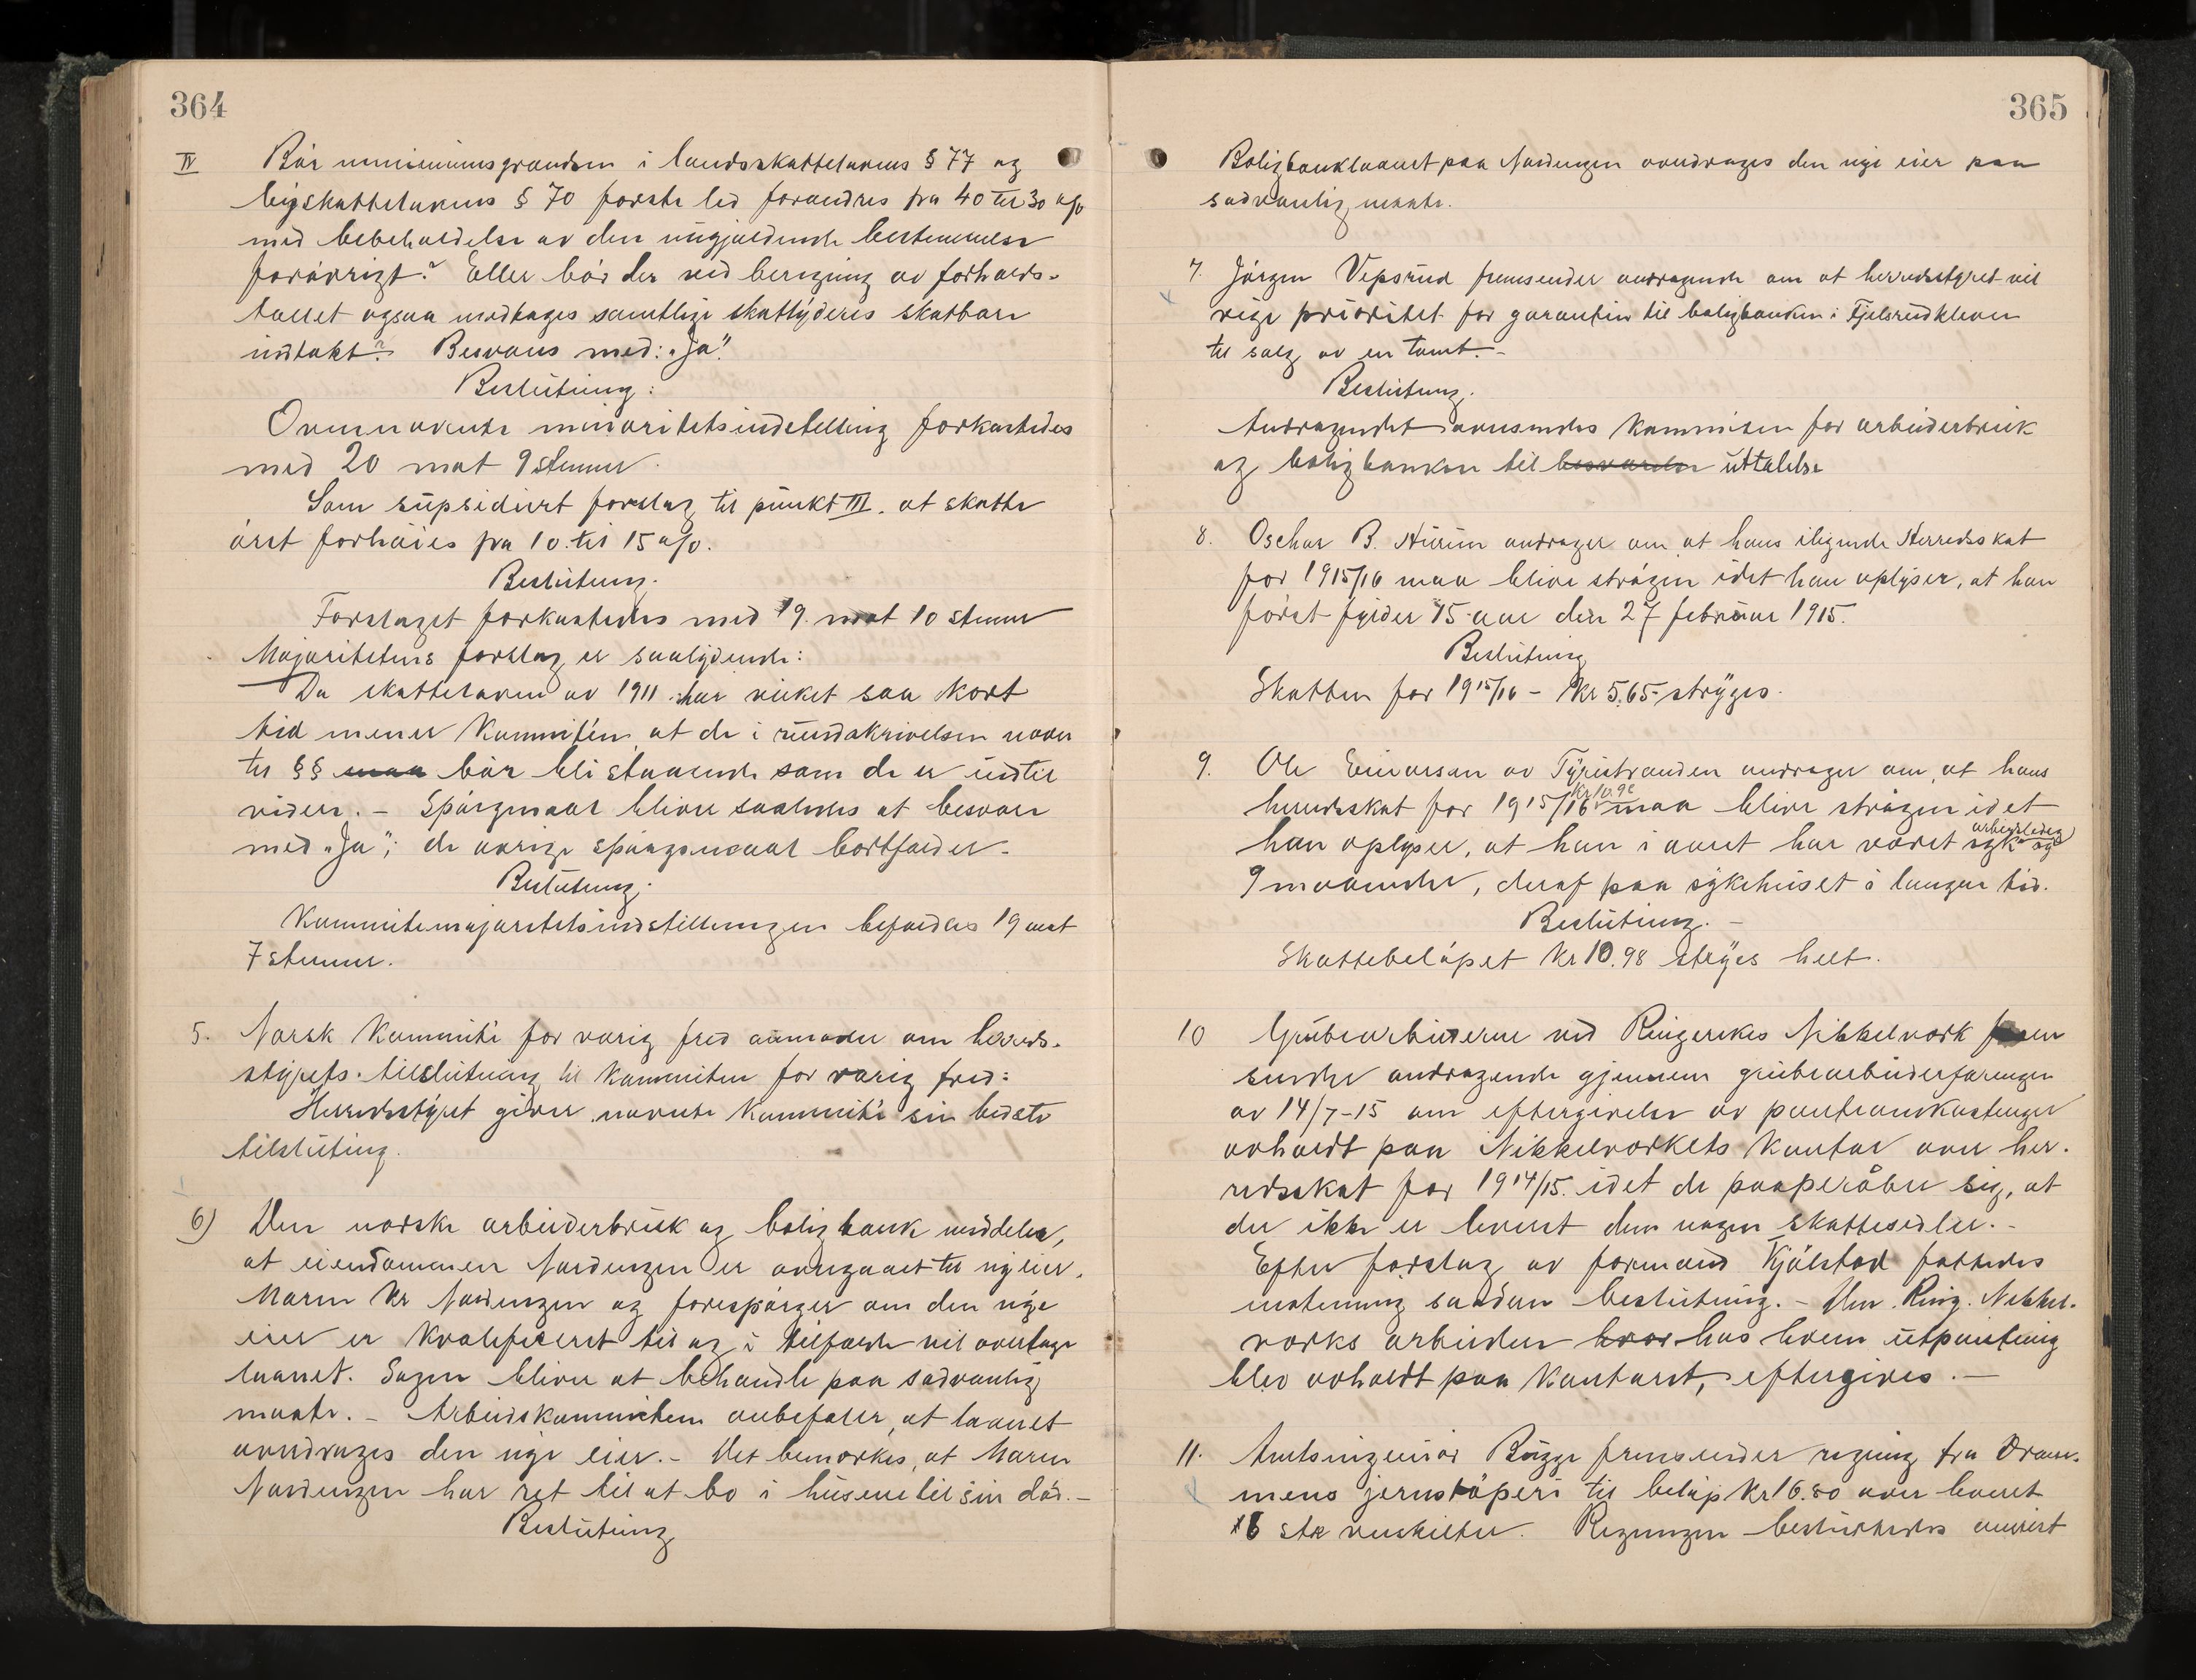 364
IV Bör minimumsgrændsen i landsskattelovens § 77 og
byskattelovens § 70 første led forandres fra 40 til 30 o/o
med bebeholdelse av den nugjældende bestemmelse
forövrigt? Eller bör der ved beregning av forholds-
tallet ogsaa medtages samtlige skattyderes skatbare
indtækt? Besvares med: "Ja".
Beslutning:
Ovennævnte minoritetsindstilling forkastedes
med 20 mot 9 stemmer.
Som supsidiert forslag til punkt III. at skatte
öret forhöies fra 10. til 15 o/o.
Beslutning.
Forslaget forkastedes med 19. mot 10 stemmer
Majoritetens forslag er saalydende:
Da skatteloven av 1911 har virket saa kort
tid mener Kommiteén, at de i rundskrivelsen nævn
te §§ maa bör bli staaende som de er indtil
videre. - Spörgsmaal bliver saaledes at besvare
med "Ja"; de övrige spörgsmaal bortfalder.
Beslutning.
Kommitemajoritetsindstillingen befaldes 19 mot
7 stemmer.
5. Norsk Kommité for varig fred anmoder om herreds-
styrets tilslutning til Kommiteen for varig fred:
Herredsstyret giver nævnte Kommité sin bedste
tilslutting.
6) Den norske arbeiderbruk og boligbank meddeler,
at eiendommen Nordengen er overgaaet til ny eier,
Maren Kr Nordengen og forespörger om den nye
eier er kvalificeret til og i tilfælde vil overtage
laanet. Sagen bliver at behandle paa sædvanlig
maate. - Arbeidskommiteen anbefaler, at laanet
overdrages den nye eier. - Det bemerkes, at Maren
Nordengen har ret til at bo i husene til sin död. -
Beslutning
365
Boligbanklaanet paa Nordengen overdrages den nye eier paa
sædvanlig maate.
7. Jörgen Vepsrud fremsender andragende om at herredsstyret vil
vige prioritet for garantien til boligbanken i Fjelsrudkleven
til salg av en tomt. -
Beslutning.
Andragendet oversendes Kommiteen for arbeiderbruk
og boligbanken til besvarelse uttalelse
8. Oschar B. Hurum andrager om, at hans iligende Herredsskat
for 1915/16 maa blive strögen idet han oplyser, at han
först fylder 15 aar den 27 februar 1915.
Beslutning
Skatten for 1915/16 - kr 5,65 stryges.
9. Ole Einarsen av Tyristranden andrager om, at hans
herredsskat for 1915/16 kr 10.98 maa blive strögen idet
han oplyser, at han i aaret har været syk og arbeidsledig
9 maaneder, deraf paa sykehuset i længere tid.
Beslutning. -
Skattebelöpet kr 10.98 stryges helt.
10 Grubearbeiderne ved Ringerikes Nikkelverk frem
sender andragende gjennem grubearbeiderforeningen
av 14/7-15 om eftergivelse av panteomkostninger
avholdt paa Nikkelverkets Kontor over her-
redsskat for 1914/15. idet de paaperåber sig, at
der ikke er leveret dem nogen skattesedler. -
Efter forslag av formand Kjölstad fattedes
enstemmig saadan beslutning. - Den Ring. Nikkel-
verks arbeidere hvor hos hvem utpanting
blev avholdt paa Kontoret, eftergives. -
11. Amtsingeniör Bugge fremsender regning fra Dram-
mens jernstöperi til belöp kr 16.80 over leveret
6 stk veiskilter. Regningen besluttedes anvist